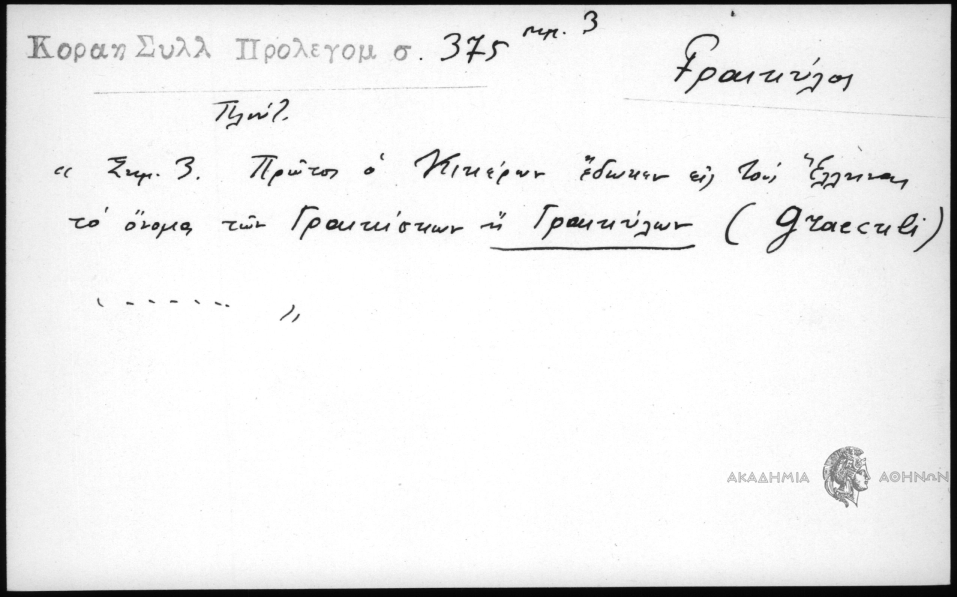 Κοραη Συλλ Προλεγομ σ. 375 σημ. 3
Γραικύλος
Πλούτ.
“ Σημ. 3. Πρῶτος ὁ Κικέρων ἔδωκεν εἰς τούς Ἕλληνας
τό ὄνομα τῶν Γραικίσκων ἤ Γραικύλων (Graeculi)
( - - - - - - „
ΑΚΑΔΗΜΙΑ ΑΘΗΝΩΝ